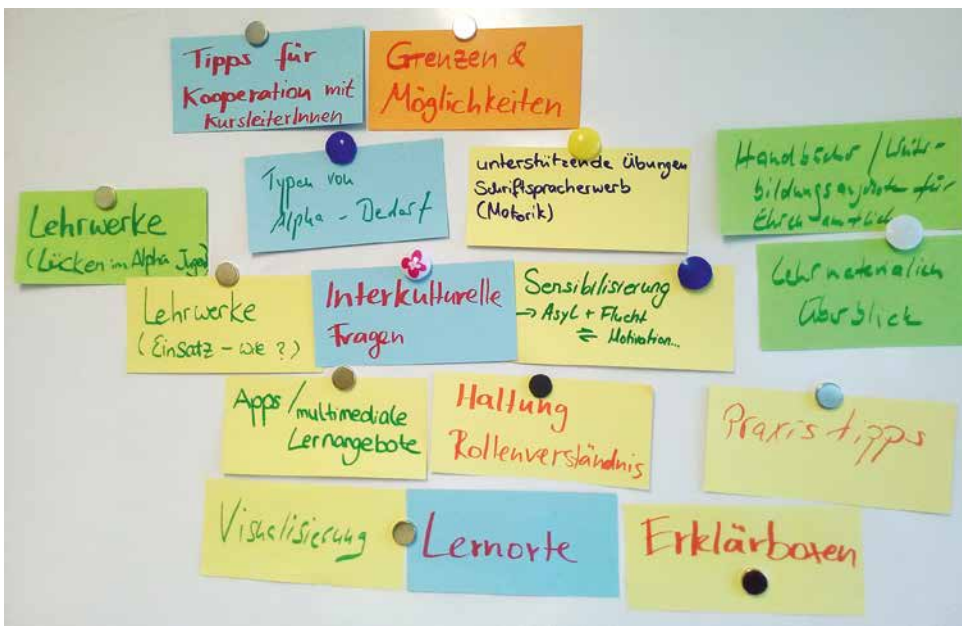 Tipps für
Kooperation mit
KursleiterInnen
Grenzen &
Möglichkeiten
Typen von
Alpha-Bedarf
unterstützende Übungen
Schriftspracherwerb
(Motorik)
Handbücher /
bildungsangebote für
Ehrenamtliche
Lehrwerke
(Lücken im Alpha Jugend)
Lehrwerke
(Einsatz - wie?)
Interkulturelle
Fragen
Sensibilisierung
→ Asyl + Flucht
⇌ Motivation...
Lehrmaterialien
Überblick
Apps / multimediale
Lernangebote
Haltung
Rollenverständnis
Praxistipps
Visualisierung
Lernorte
Erklärboxen